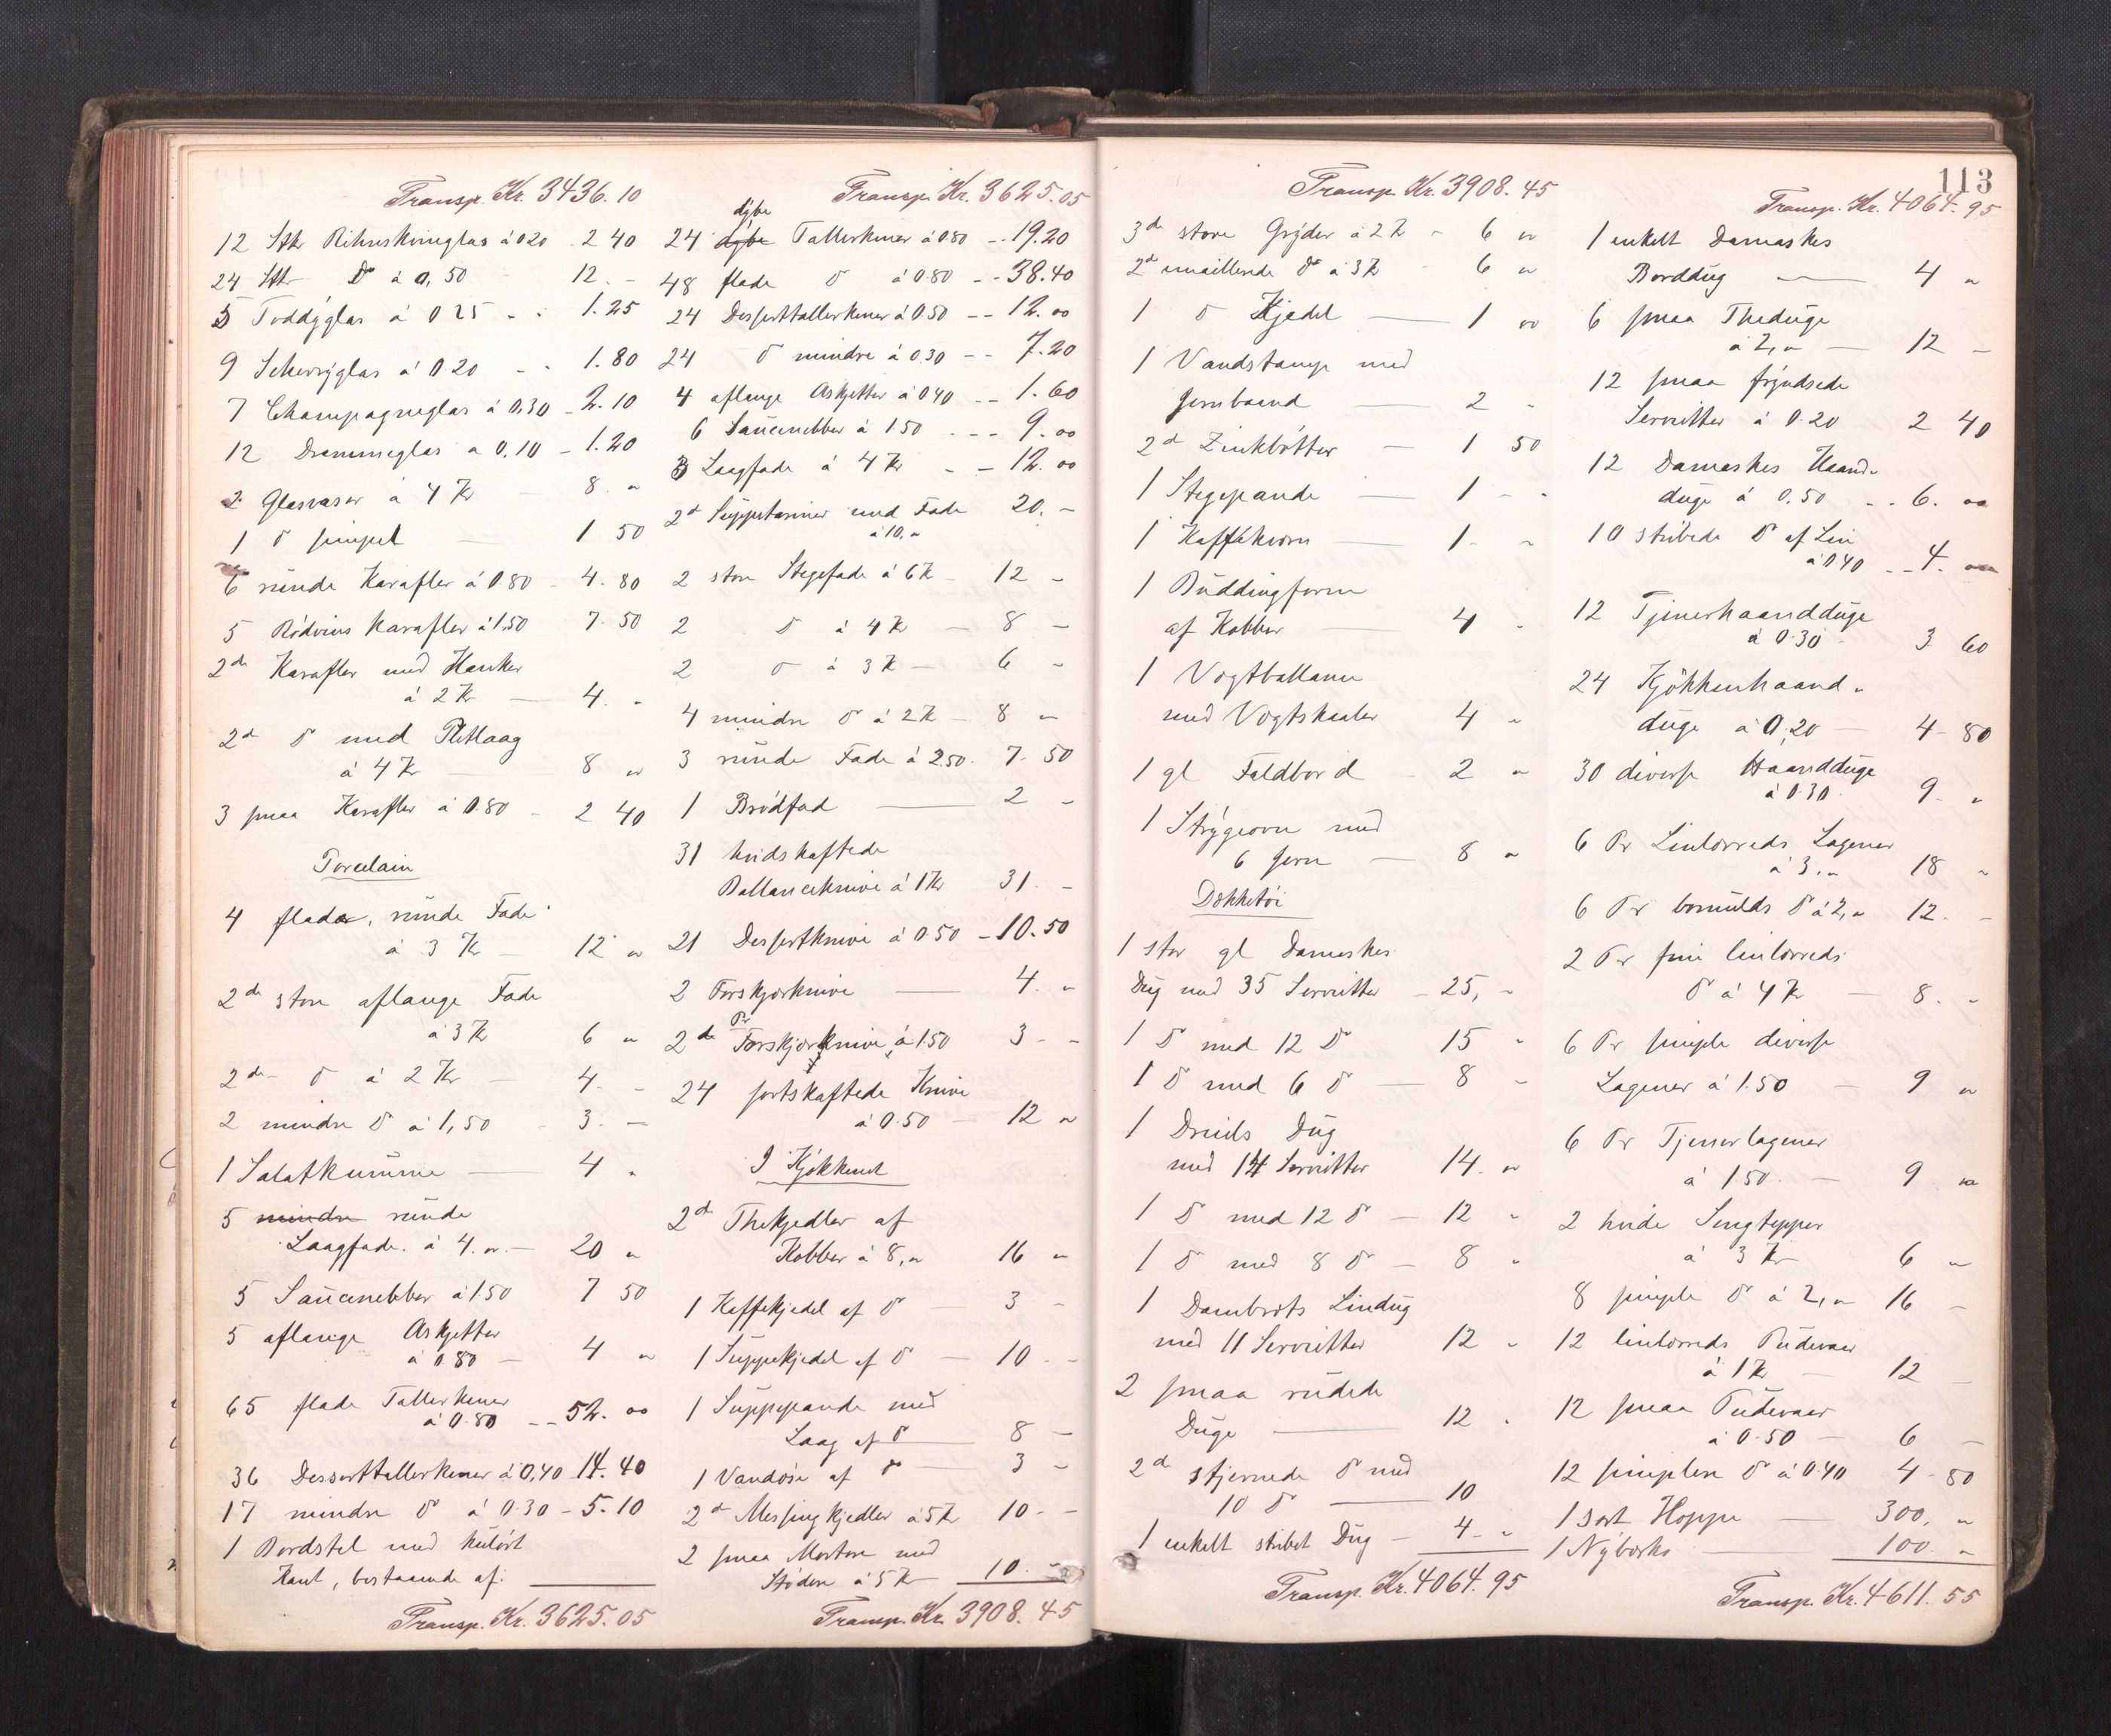 Transp. Kr. 3436.10
12 Stkr Rihnskvinglas à 0 20 - 2 40
24 Stkr D° à 0,50 12. -
5 Toddÿglas à 0 25 - - 1.25
9 Scherrÿglas à 0.20 - - 1.80
7 Champagneglas à 0,30 - 2.10
12 Drammeglas a 0,10 - 1.20
2 Glasvaser à 4 Kr - 8. "
1 D° simpel - 1 50
6 runde Karafler à 0.80 - 4.80
5 Rødvins Karafler à 1.50 7.50
2de Karafler med Hanker
à 2 Kr - 4. "
2de D° med Pletlaag
à 4 Kr - 8 "
3 smaa Karafler à 0.80 - 2 40
Porcelain
4 flade, runde Fade
à 3 Kr - 12 "
2de store aflange Fade
à 3 Kr 6 "
2de - D° à 2 Kr - 4. -
2 mindre D° à 1,50 - 3. -
1 Salatkumme - 4 "
5 mindre runde
Laagfade. à 4. " - 20 "
5 Saucenebber à 1.50 7 50
5 aflange Askjetter
à 0.80 - 4 "
65 flade Tallerkener
à 0.80 - - 52. 00
36 Desserttallerkener à 0,40 14.40
17 mindre D° à 0.30 - 5.10
1 Bordstel med kulørt
Kant, bestaaende af:
Transp. Kr. 3625.05
Transp. Kr. 3625.05
dÿbe
24 dÿbe Tallerkener à 0.80 - - 19.20
48 flade D° à 0.80 - - 38.40
24 Desserttallerkener à 0.50 - - 12.00
24 D° mindre à 0.30 - - 7.20
4 aflange Askjetter à 0.40 - - 1.60
6 Saucenebber à 1.50 - - - 9.00
3 Laagfade à 4 Kr - - 12.00
2de Suppeterriner med Fade 20. -
à 10, "
2 store Stegefade à 6 Kr - 12 -
2 D° à 4 Kr - 8 -
2 D° à 3 Kr - 6 -
4 mindre D° à 2 Kr - 8 -
3 runde Fade à 2.50. 7.50
1 Brødfad - 2 -
31 hvidskaftede
Ballanceknive à 1 Kr 31. -
21 Dessertknive à 0.50 - 10.50
2 Forskjærknive - 4. "
2de Pr Forskjærknive, à 1.50 3. -
24 sortskaftede Knive
à 0.50 - 12 "
I Kjøkkenet
2de Thekjedler af
Kobber à 8, " 16 "
1 Kaffekjedel af D° 3 -
1 Suppekjedel af D° - 10. -
1 Suppepande med
Laag af D° 8 -
1 Vandøse af D° - 3 -
2de Messingkjedler à 5 Kr 10. -
2 smaa Mortere med
Stødere à 5 Kr - 10. -
Transp. Kr. 3908.45
113
Transp. Kr. 3908.45
3de store Grÿder à 2 Kr - 6 "
2de emaillerede D° à 3 Kr - 6 "
1 D° Kjedel - 1 "
1 Vandstamp med
Jernbaand - 2 -
2de Zinkbøtter - 1 50
1 Stegepande - 1 - -
1 Kaffékværn - 1. -
1 Buddingform
af Kobber - 4 -
1 Vægtballance
med Vægtskaaler 4 -
1 gl Foldbord - 2 "
1 Strÿgeovn med
6 Jern - 8 "
Dækketøi
1 stor gl Damaskes
Dug med 35 Servietter - 25, -
1 D° med 12 D° 15 -
1 D° med 6 D° - 8 -
1 Dreiels Dug
med 14 Servietter 14. "
1 D° med 12 D° - 12 -
1 D° med 8 D° - 8 -
1 Dambræts Lindug
med 11 Servietter 12 -
2 smaa rudede
Duge - 12 -
2de stjernede D° med
10 D° - 10
1 enkelt stribet Dug - 4 - "
Transp. Kr. 4064.95
Transp. Kr. 4064.95
1 enkelt Damaskes
Borddug - 4 "
6 smaa Theduge
à 2, " - 12 -
12 smaa frÿndsede
Servietter à 0.20 2 40
12 Damaskes Haand-
duge à 0.50 - - 6. 00
10 stribede D° af Lin
à 0.40 - - 4. 00
12 Tjenerhaandduge
à 0.30 - 3 60
24 Kjøkkenhaand-
duge à 0,20 - 4 - 80
30 diverse Haandduge
à 0.30. 9. "
6 Pr Linlærreds Lagener
à 3. " 18 "
6 Pr bomulds D° à 2, " 12. -
2 Pr fine linlærreds
D° à 4 Kr - 8. -
6 Pr simple diverse
Lagener à 1.50 - 9 "
6 Pr Tjenerlagener
à 1.50. - 9 "
2 hvide Sengtepper
à 3 Kr 6 "
8 simple D° à 2, " 16 -
12 linlærreds Pudevaar
à 1 Kr - 12 -
12 smaa Pudevaar
à 0.50 - 6 -
12 simplere D° à 0.40 4 - 80
1 sort Hoppe - 300, "
1 Nÿbærko 100. "
Transp. Kr. 4611.55